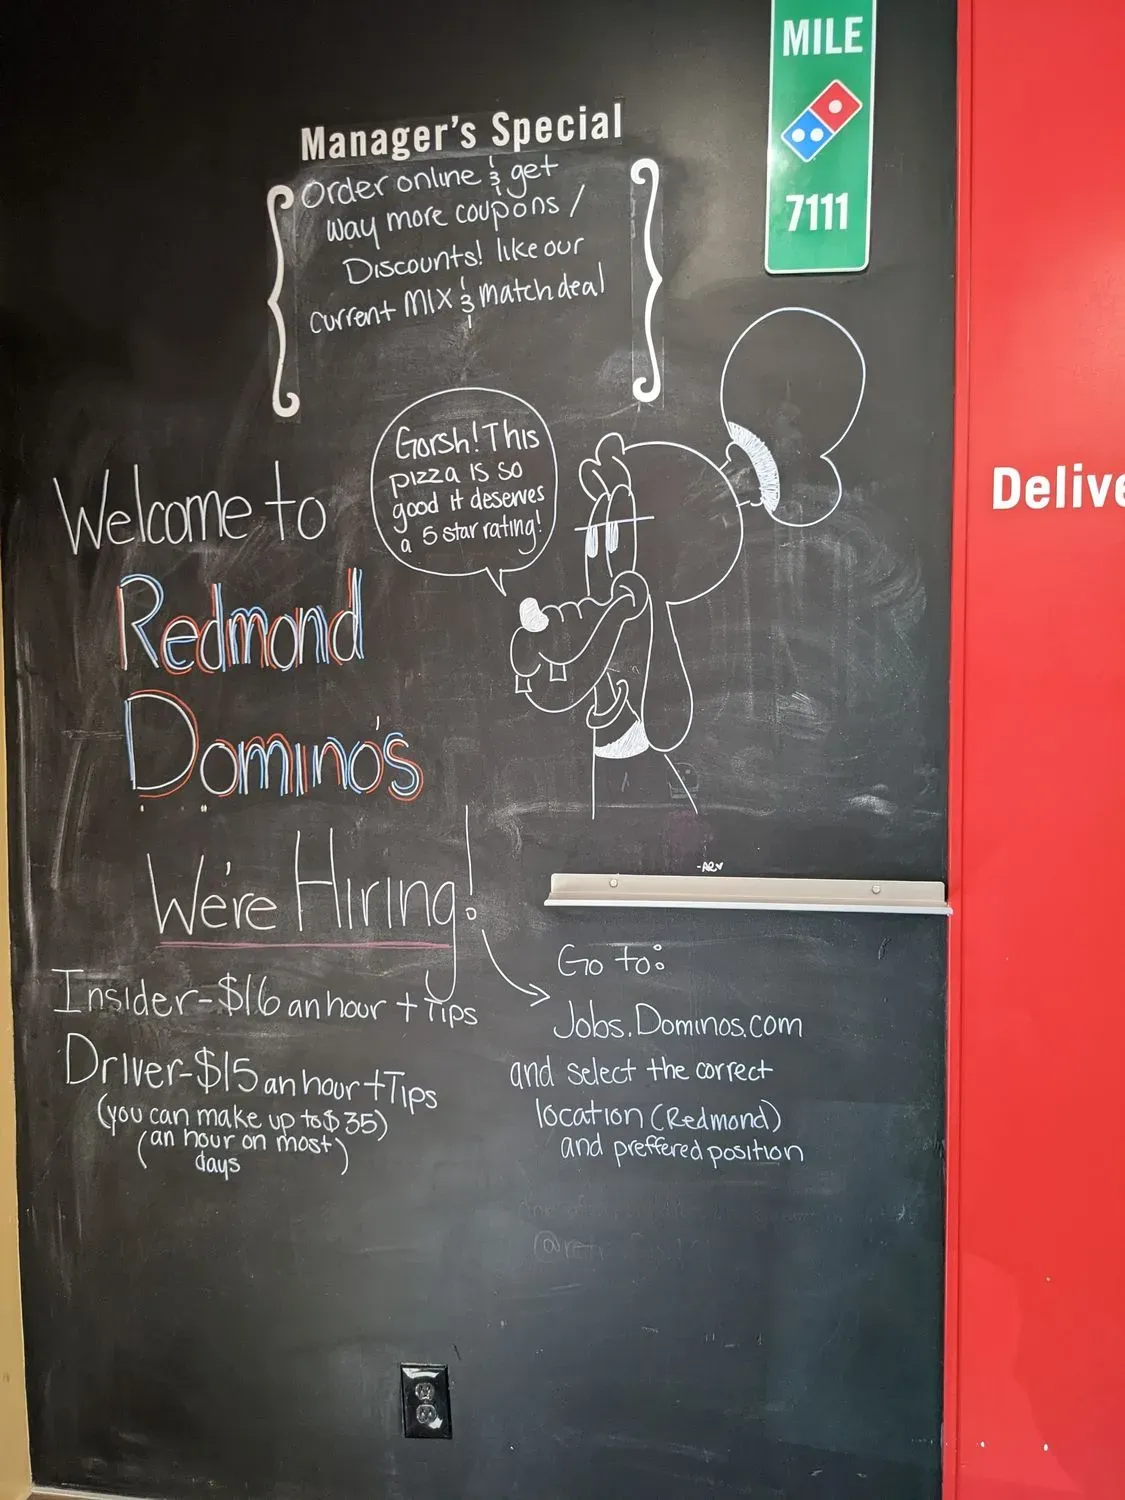 MILE
7111
Manager's Special
Order online & get
way more coupons /
Discounts! like our
current Mix & match deal
Gorsh! This
pizza is so
good it deserves
a 5 star rating!
Welcome to
Redmond
Domino's
We're Hiring!
Insider-$16 an hour + Tips
Driver-$15 an hour + Tips
(you can make up to $35)
(an hour on most)
days
-AR
Go to:
Jobs.Dominos.com
and select the correct
location (Redmond)
and preffered position
Delive